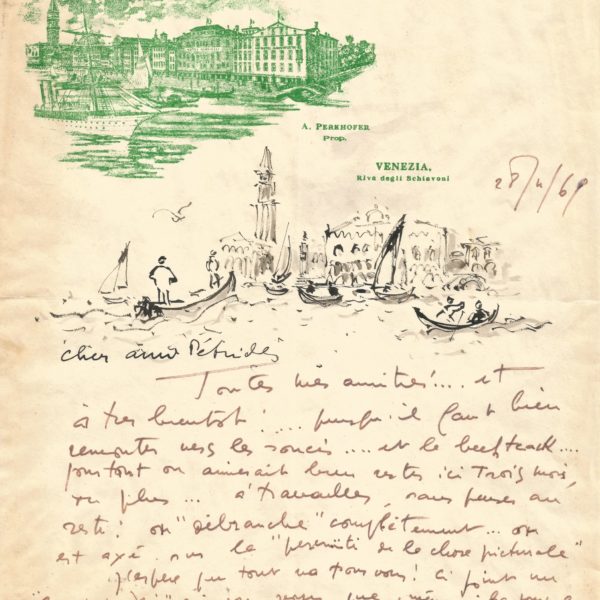 A. Perkhofer
Prop.
VENEZIA,
Riva degli Schiavoni
28/4/69
cher ami Pétridès
Toutes mes amitiés!... et
à tres bientot! .... puisqu'il faut bien
remonter vers les soucis .... et le beefteack....
pourtant on aimerait bien rester ici Trois mois,
ou plus... à travailler, sans penser au
reste! on "débranche" complètement... on
est axé sur la "de la chose picturale"
J'espère que tout va pour vous! ci joint un